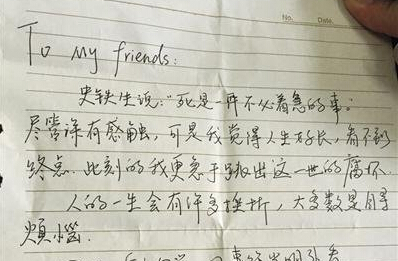 No.  Date.
To My friends:
史铁生说:"死是一件不必着急的事。
尽管深有感触，可是我觉得人生好长，看不到
终点. 此刻的我更急于跳出这一世的腐坏.
人的一生会有许多挫折，大多数是自寻
烦恼.